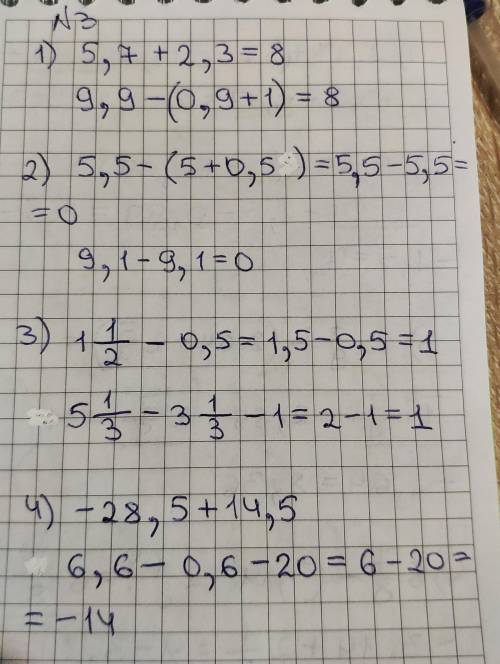 N3
1) 5,7 + 2,3 = 8
9,9 - (0,9 + 1) = 8
2) 5,5 - (5 + 0,5 ) = 5,5 - 5,5 =
= 0
9,1 - 9,1 = 0
3) 1 1/2 - 0,5 = 1,5 - 0,5 = 1
5 1/3 - 3 1/3 - 1 = 2 - 1 = 1
4) -28,5 + 14,5
6,6 - 0,6 - 20 = 6 - 20 =
= -14